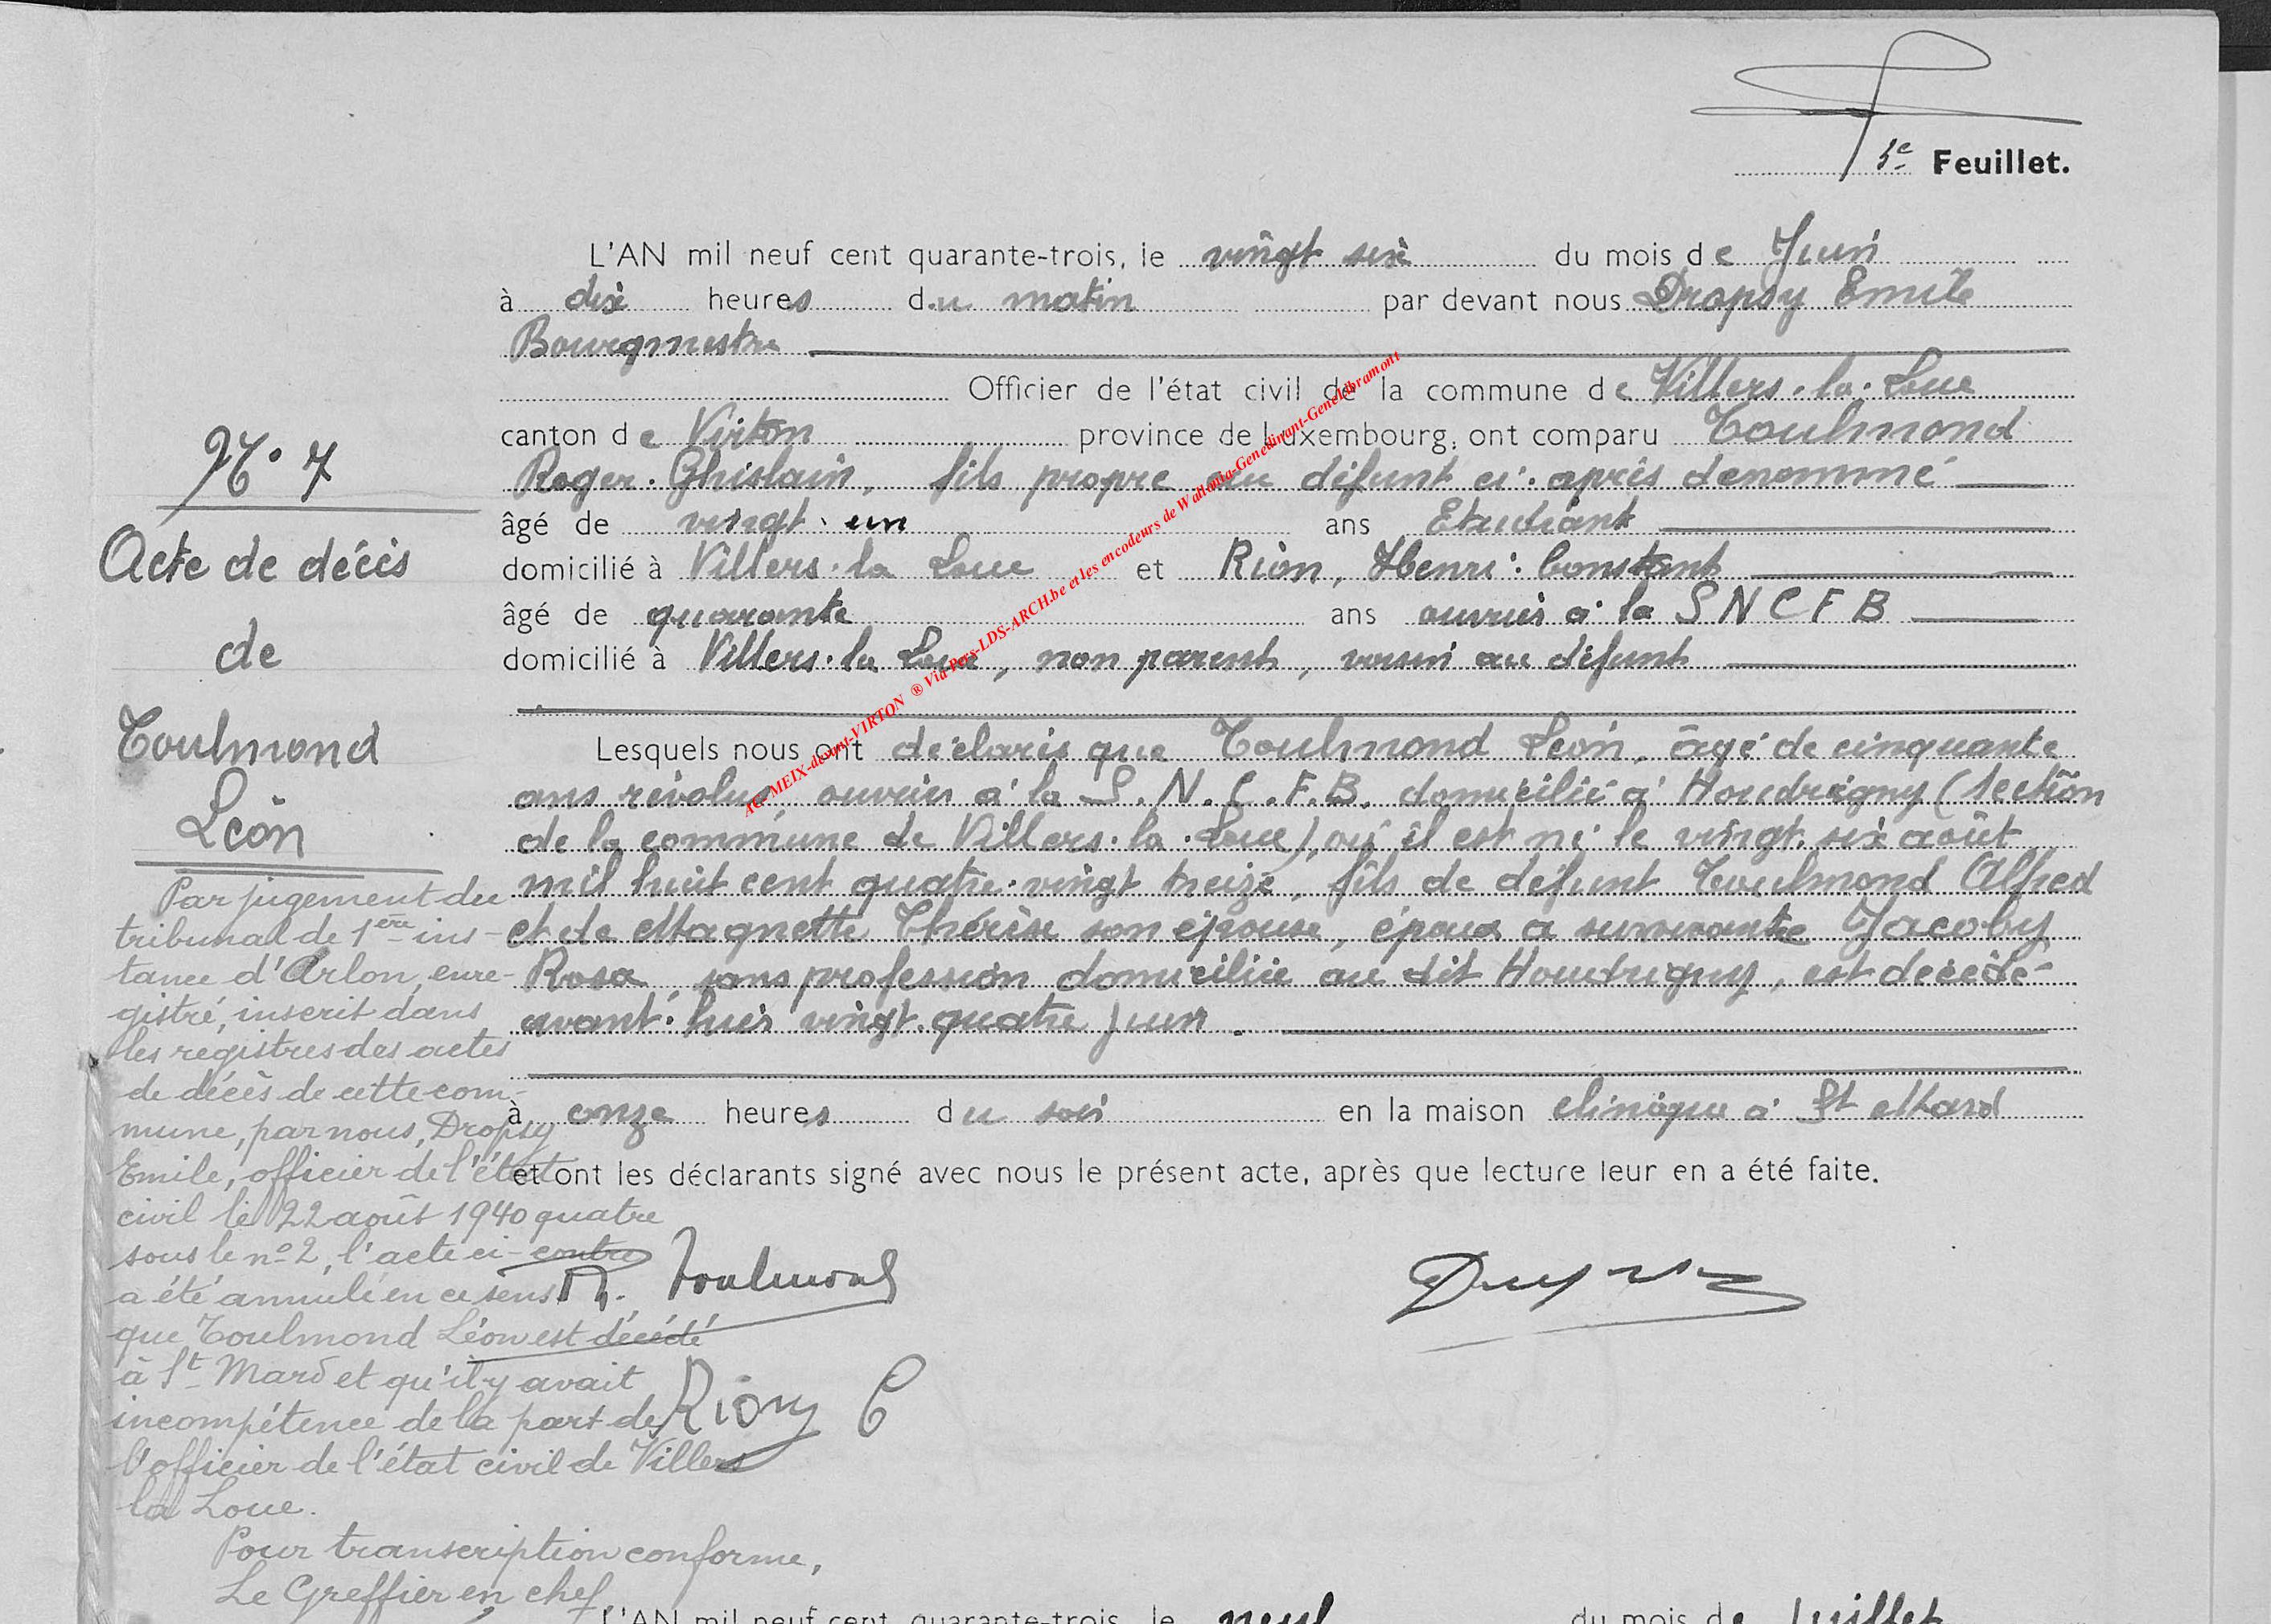 5e Feuillet.
L'AN mil neuf cent quarante-trois, le vingt six du mois de Juin
à dix heures du matin par devant nous Dropsy Emile
Bourgmestre
Officier de l'état civil de la commune de Villers-la-Loue
canton de Virton province de Luxembourg, ont comparu Toulmond
Roger-Ghislain, fils propre au défunt ci-après dénommé
âgé de vingt-un ans Etudiant
domicilié à Villers-la Loue et Rion, Henri-Constant
âgé de quarante ans ouvrier à la S N C F B
domicilié à Villers-la Loue, non parent, voisin au défunt
Lesquels nous ont déclaré que Toulmond Léon, âgé de cinquante
ans révolus, ouvrier à la S.N.C.F.B. domicilié à Houdrigny (section
de la commune de Villers-la-Loue), où il est né le vingt-six août
mil huit cent quatre-vingt treize, fils de défunt Toulmond Alfred
et de Magnette Thérèse son épouse, époux a survivante Jacoby
Rosa sans profession domiciliée au dit Houdrigny, est décédé
avant-hier vingt-quatre juin.
à onze heures du soir en la maison clinique à St Mard
et ont les déclarants signé avec nous le présent acte, après que lecture leur en a été faite.
R. Toulmond
Dropsy
Rion C
N° 7
Acte de décès
de
Toulmond
Léon
Par jugement du
tribunal de 1ère ins-
tance d'Arlon, enre-
gistré, inscrit dans
les registres des actes
de décès de cette com-
mune, par nous, Dropsy
Emile, officier de l'état
civil le 22 août 1940 quatre
sous le n° 2, l'acte ci-contre
a été annulé en ce sens
que Toulmond Léon est décédé
à St Mard et qu'il y avait
incompétence de la part de
l'officier de l'état civil de Villers
la Loue.
Pour transcription conforme,
Le Greffier en chef,
L'AN mil neuf cent quarante-trois, le neuf du mois de Juillet
AC-MEIX-devant-VIRTON ® Via Pers-LDS-ARCH.be et les encodeurs de Wallonia-Genedinant-Genelibramont